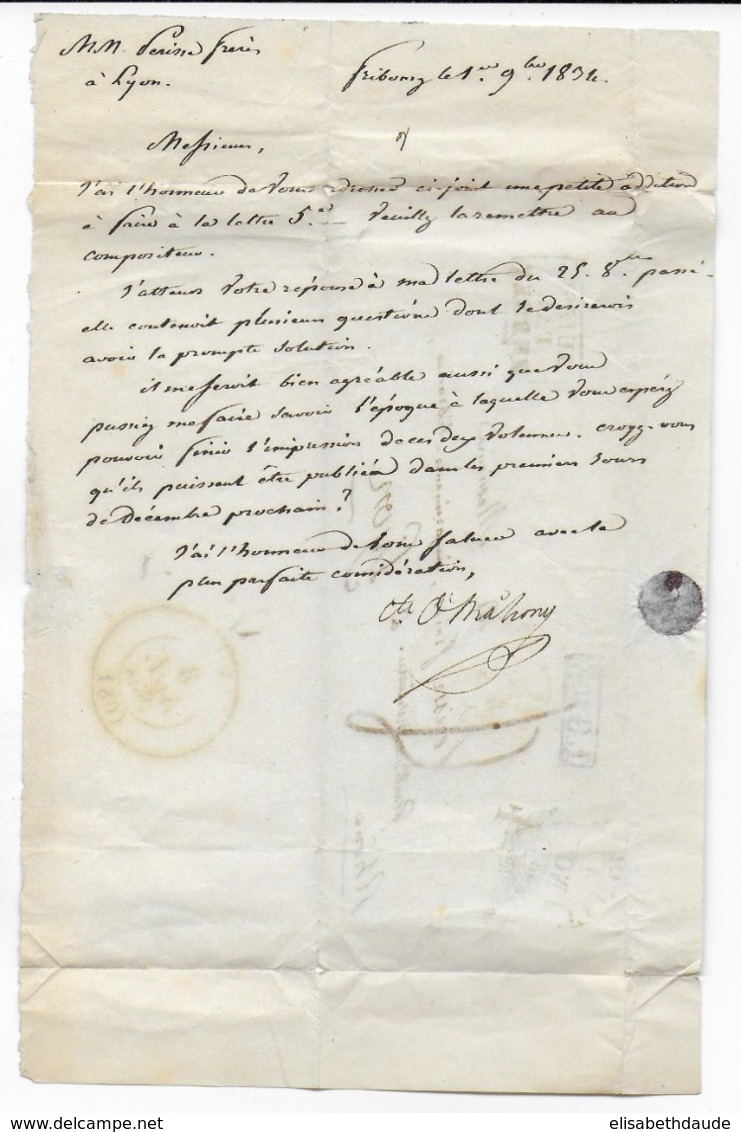 MM. Perisse frères
à Lyon.
Fribourg le 1er 9bre 1834.
Messieurs,
J'ai l'honneur de vous adresser ci-joint une petite addition
à faire à la lettre 5e veuillez la remettre au
compositeur.
J'attens votre réponse à ma lettre du 25. 8bre passé.
elle contenoit plusieurs questions dont je desirerois
avoir la prompte solution.
il me seroit bien agréable aussi que vous
pussiez me faire savoir l'époque à laquelle vous espérez
pouvoir finir l'impression de ces deux volumes. croyez-vous
qu'ils puissent être publiés dans les premiers jours
de Décembre prochain ?
J'ai l'honneur de vous saluer avec la
plus parfaite considération,
Cte O'Mahony
www.delcampe.net
elisabethdaude